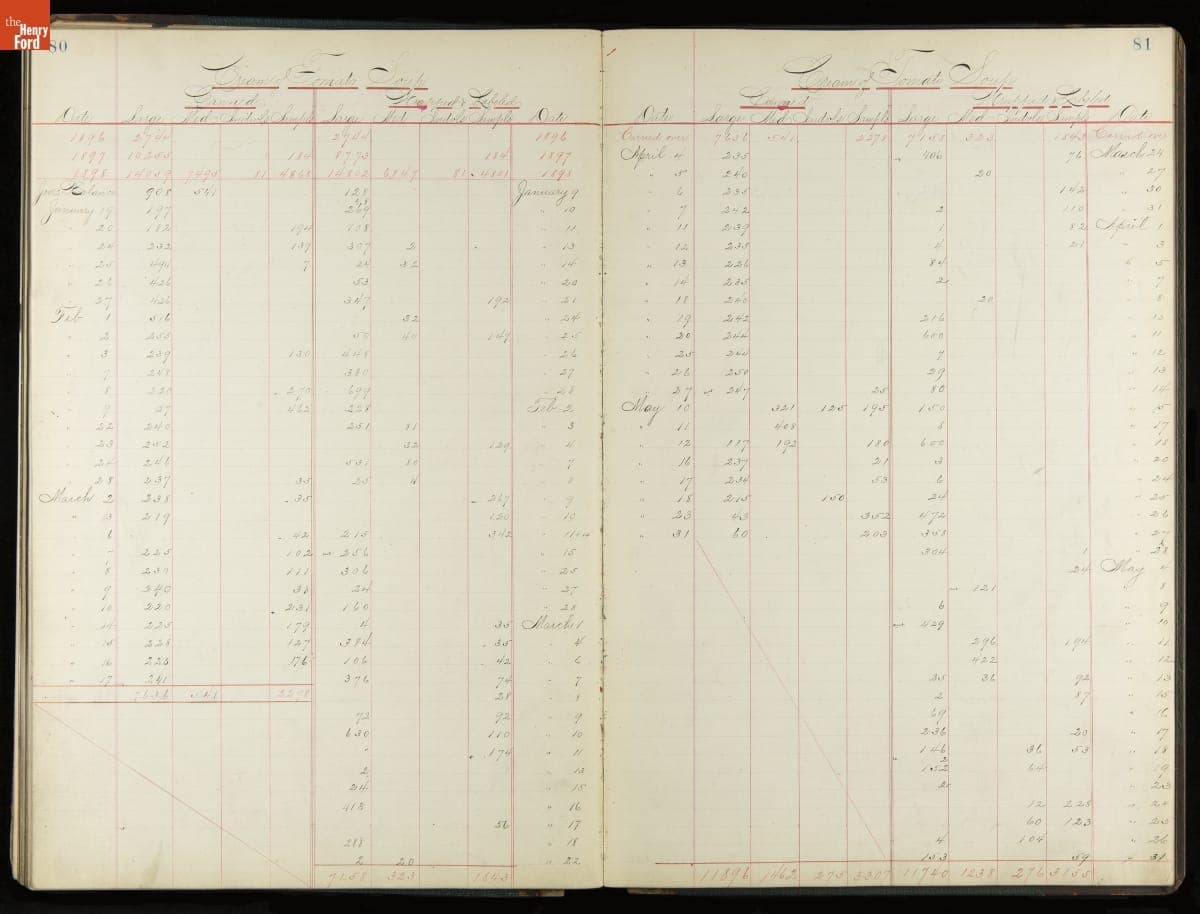 the Henry Ford
80
Cream of Tomato Soup
Canned Wrapped & Labeled
Date Large Med Individs Sample Large Med Individs Sample Date
1896 2744 2744 1896
1897 10255 184 8773 184 1897
1898 14059 7495 81 4868 14802 6847 81 4801 1898
Balance 908 541 128 January 9
January 19 197 269 " 10
" 20 182 194 108 " 11
" 24 232 139 307 2 " 13
" 25 494 7 24 32 " 14
" 26 426 53 " 20
" 27 426 347 192 " 21
Feb 1 516 32 " 24
" 2 255 50 40 149 " 25
" 3 239 130 448 " 26
" 7 248 380 " 27
" 8 220 270 699 " 28
" 9 27 462 228 Feb 2
" 22 240 251 81 " 3
" 23 252 32 129 " 4
" 24 246 531 80 " 7
" 28 237 35 25 4 " 8
March 2 238 35 267 " 9
" 3 219 120 " 10
6 42 215 342
" 225 102 256 " 15
" 8 230 111 306 " 25
" 9 240 38 24 " 27
" 10 220 231 160 " 28
" 14 225 179 4 35 March 1
" 15 228 127 384 35 " 4
" 16 225 176 106 42 " 6
" 17 241 376 74 " 7
7636 541 2278 28 " 8
72 92 " 9
630 110 " 10
" 174 " 11
2 " 13
24 " 15
413 " 16
56 " 17
288 " 18
2 20 " 22
7158 323 1843
81
Cream of Tomato Soup
Canned Wrapped & Labeled
Date Large Med Individs Sample Large Med Individs Sample Date
Carried over 7636 541 2278 7158 323 1843 Carried over
April 4 235 406 76 March 24
" 5 240 20 " 27
" 6 235 142 " 30
" 7 242 2 110 " 31
" 11 239 1 82 April 1
" 12 235 4 21 " 3
" 13 226 84 " 5
" 14 235 2 " 7
" 18 240 20 " 8
" 19 242 216
" 20 244 600 " 11
" 25 244 7 " 12
" 26 250 29 " 13
" 27 247 25 80 " 14
May 10 321 125 195 150
" 11 408 8 " 17
" 12 117 192 180 600 " 18
" 16 237 21 3 " 20
" 17 234 53 6 " 24
" 18 215 150 24 " 25
" 23 43 352 472 " 26
" 31 60 203 358 " 27
304 1 " 28
24 May 4
121 " 8
6 " 9
429 " 10
296 194 " 11
422 " 12
35 36 92 " 13
2 87 " 15
69 " 16
236 20 " 17
146 36 53 " 18
152 64 " 19
2 " 23
12 228 " 24
60 123 " 25
4 104 " 26
153 59 " 31
11896 1462 275 3307 11740 1238 276 3155